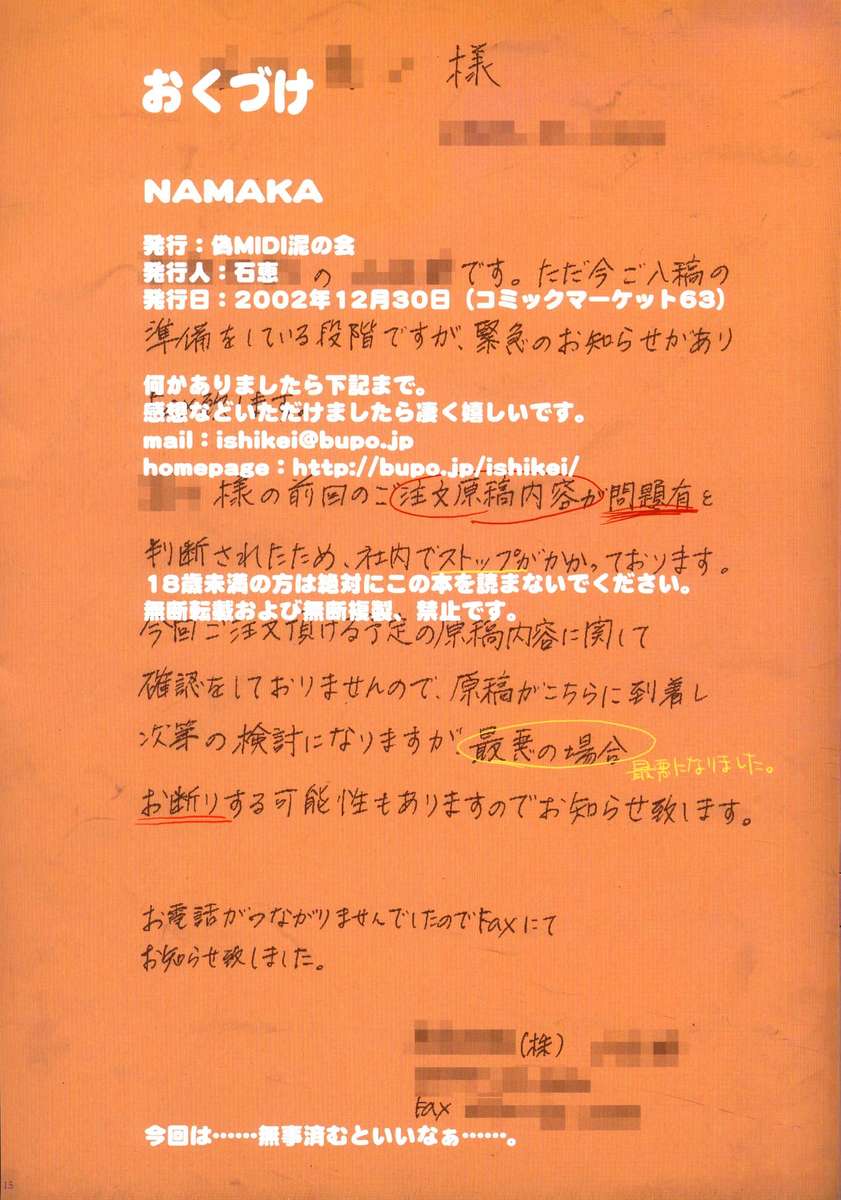 様
おくづけ
NAMAKA
発行：偽MIDI泥の会
発行人：石恵
の
です。ただ今ご入稿の
発行日：2002年12月30日（コミックマーケット63）
準備をしている段階ですが、緊急のお知らせがあり
何かありましたら下記まで。
Fax致します。
感想などいただけましたら凄く嬉しいです。
mail：ishikei@bupo.jp
homepage：http://bupo.jp/ishikei/
様の前回のご注文原稿内容が問題有と
判断されたため、社内でストップがかかっております。
18歳未満の方は絶対にこの本を読まないでください。
無断転載および無断複製、禁止です。
今回ご注文頂ける予定の原稿内容に関して
確認をしておりませんので、原稿がこちらに到着し
次第の検討になりますが、最悪の場合
最悪になりました。
お断りする可能性もありますのでお知らせ致します。
お電話がつながりませんでしたのでFaxにて
お知らせ致しました。
(株)
Fax
今回は……無事済むといいなぁ……。
15